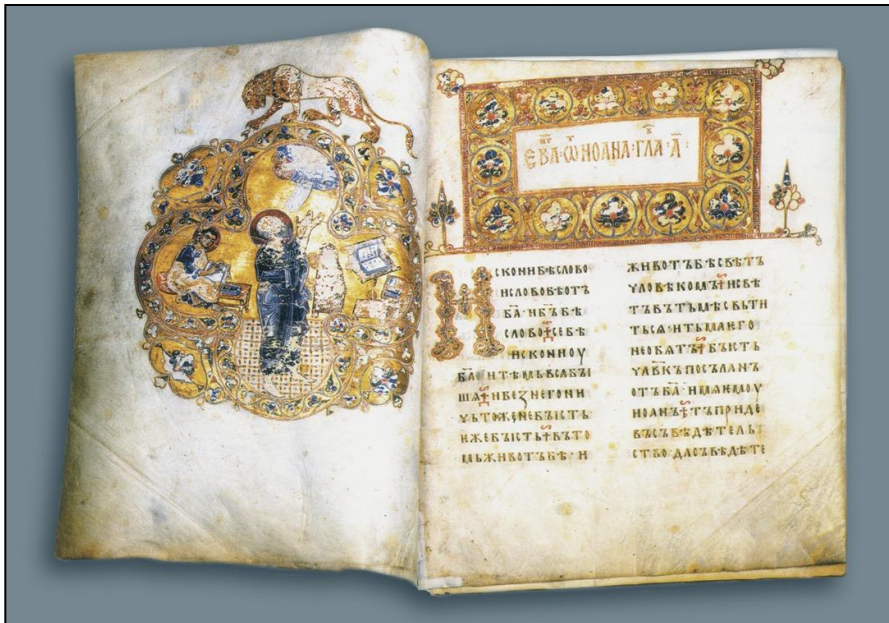 ЕВА·ѾИОАНА·ГЛА·А҃:
ИСКОНИБѢСЛОВО
ИСЛОВОБѢОТЪ
БА҃·ИБЪ҃БѢ
СЛОВО СЕБѢ
ИСКОНИОУ
БА҃·ИТѢМЬВСАБЪІ
ША ИБЕЗНЕГОНИ
ЧЬТОЖЕНЕБЪІСТЬ
ИЖЕБЪІСТЬ ВЪТО
МЬЖИВОТЪБѢ·И
ЖИВОТЪБѢСВѢТЪ
ЧЛОВѢКОМЪ ИСВѢ
ТЪВЪТЬМѢСВЬТИ
ТЬСѦ·ИТЬМАѤГО
НЕОБѦТЪ БЪІСТЬ
ЧЛВ҃КЪПОСЪЛАНЪ
ОТЪБА҃·ИМѦѤМОУ
ИОАНЪ ТЪПРИДЕ
ВЪСЪВѢДѢТЕЛЬ
СТВО·ДАСЪВѢДѢТЕ